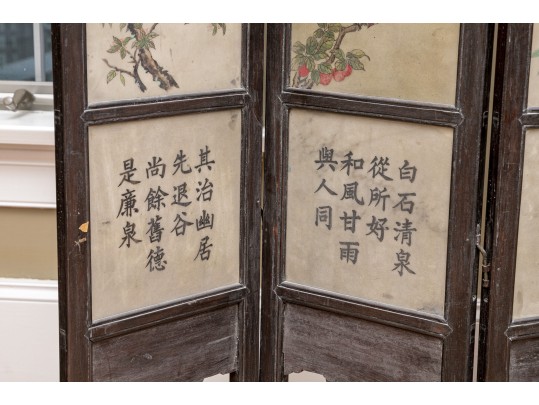 白石清泉
從所好
和風甘雨
與人同
其治幽居
先退谷
尚餘舊德
是廉泉